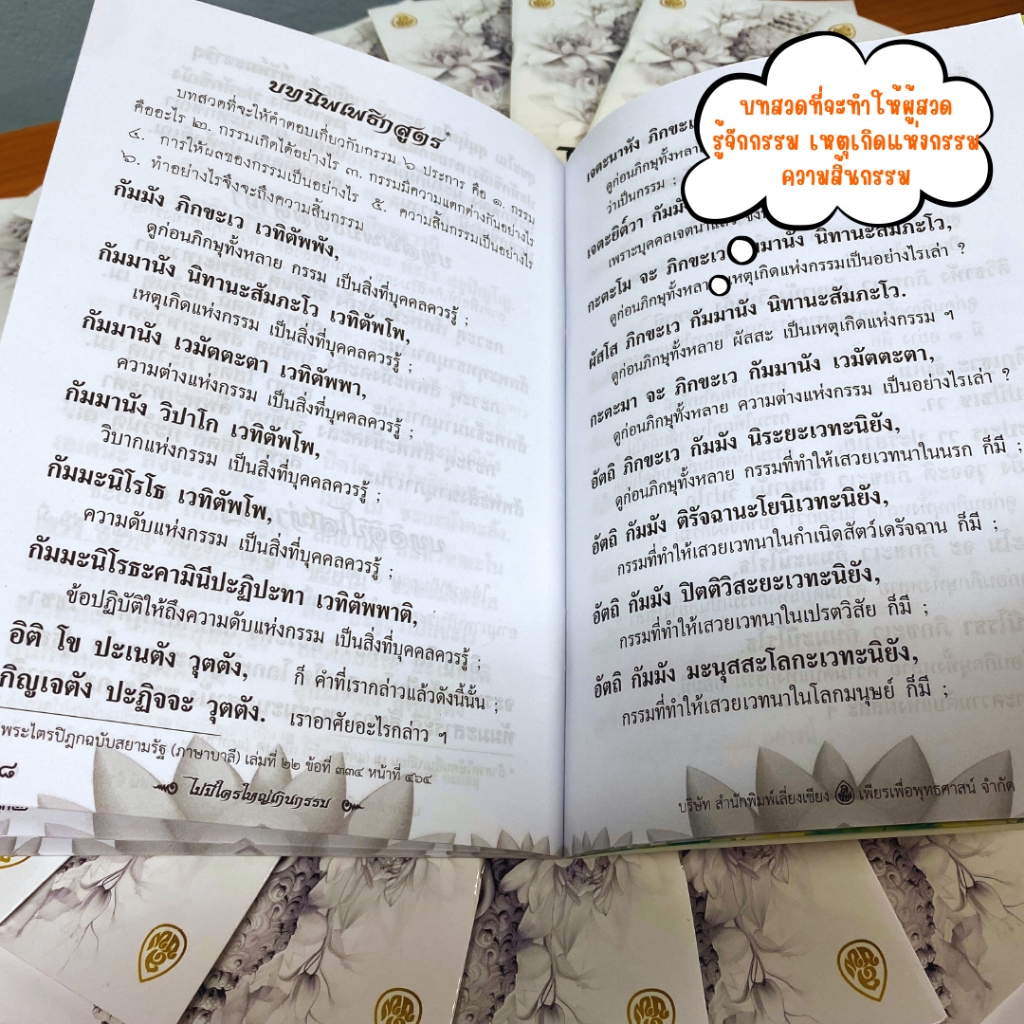 บทนิพเพธิกสูตร*
บทสวดที่จะให้คำตอบเกี่ยวกับกรรม ๖ ประการ คือ ๑. กรรม
คืออะไร ๒. กรรมเกิดได้อย่างไร ๓. กรรมมีความแตกต่างกันอย่างไร
๔. การให้ผลของกรรมเป็นอย่างไร ๕. ความสิ้นกรรมเป็นอย่างไร
๖. ทำอย่างไรจึงจะถึงความสิ้นกรรม
กัมมัง ภิกขะเว เวทิตัพพัง,
ดูก่อนภิกษุทั้งหลาย กรรม เป็นสิ่งที่บุคคลควรรู้ ;
กัมมานัง นิทานะสัมภะโว เวทิตัพโพ,
เหตุเกิดแห่งกรรม เป็นสิ่งที่บุคคลควรรู้ ;
กัมมานัง เวมัตตะตา เวทิตัพพา,
ความต่างแห่งกรรม เป็นสิ่งที่บุคคลควรรู้ ;
กัมมานัง วิปาโก เวทิตัพโพ,
วิบากแห่งกรรม เป็นสิ่งที่บุคคลควรรู้ ;
กัมมะนิโรโธ เวทิตัพโพ,
ความดับแห่งกรรม เป็นสิ่งที่บุคคลควรรู้ ;
กัมมะนิโรธะคามินีปะฏิปะทา เวทิตัพพาติ,
ข้อปฏิบัติให้ถึงความดับแห่งกรรม เป็นสิ่งที่บุคคลควรรู้ ;
อิติ โข ปะเนตัง วุตตัง, ก็ คำที่เรากล่าวแล้วดังนี้นั้น ;
กิญเจตัง ปะฏิจจะ วุตตัง. เราอาศัยอะไรกล่าว ฯ
พระไตรปิฎกฉบับสยามรัฐ (ภาษาบาลี) เล่มที่ ๒๒ ข้อที่ ๓๓๔ หน้าที่ ๔๖๔
๘
ไม่มีใครใหญ่เกินกรรม
บทสวดที่จะทำให้ผู้สวด
รู้จักกรรม เหตุเกิดแห่งกรรม
ความสิ้นกรรม
เจตะนาหัง ภิกขะเว
ดูก่อนภิกษุทั้งหลาย
ว่าเป็นกรรม ;
เจตะยิต๎วา กัมมัง
เพราะบุคคลเจตนาแล้ว
กะตะโม จะ ภิกขะเว กัมมานัง นิทานะสัมภะโว,
ดูก่อนภิกษุทั้งหลาย เหตุเกิดแห่งกรรมเป็นอย่างไรเล่า ?
ผัสโส ภิกขะเว กัมมานัง นิทานะสัมภะโว.
ดูก่อนภิกษุทั้งหลาย ผัสสะ เป็นเหตุเกิดแห่งกรรม ฯ
กะตะมา จะ ภิกขะเว กัมมานัง เวมัตตะตา,
ดูก่อนภิกษุทั้งหลาย ความต่างแห่งกรรม เป็นอย่างไรเล่า ?
อัตถิ ภิกขะเว กัมมัง นิระยะเวทะนิยัง,
ดูก่อนภิกษุทั้งหลาย กรรมที่ทำให้เสวยเวทนาในนรก ก็มี ;
อัตถิ กัมมัง ติรัจฉานะโยนิเวทะนิยัง,
กรรมที่ทำให้เสวยเวทนาในกำเนิดสัตว์เดรัจฉาน ก็มี ;
อัตถิ กัมมัง ปิตติวิสะยะเวทะนิยัง,
กรรมที่ทำให้เสวยเวทนาในเปรตวิสัย ก็มี ;
อัตถิ กัมมัง มะนุสสะโลกะเวทะนิยัง,
กรรมที่ทำให้เสวยเวทนาในโลกมนุษย์ ก็มี ;
บริษัท สำนักพิมพ์เลี่ยงเชียง เพียรเพื่อพุทธศาสน์ จำกัด